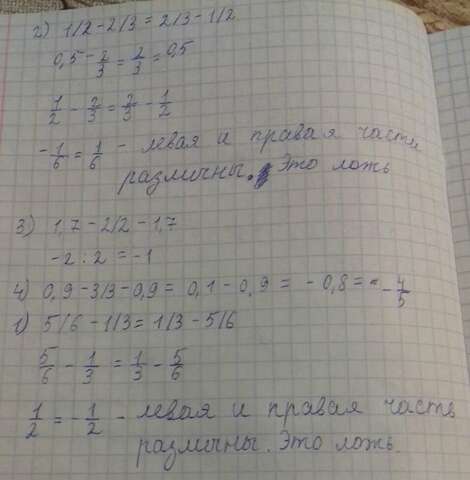 2) 1/2 - 2/3 = 2/3 - 1/2
0,5 - 2/3 = 2/3 = 0,5
1/2 - 2/3 = 2/3 - 1/2
-1/6 = 1/6 - левая и правая части
различны. Это ложь
3) 1,7 - 2/2 - 1,7
-2 : 2 = -1
4) 0,9 - 3/3 - 0,9 = 0,1 - 0,9 = - 0,8 = - 4/5
1) 5/6 - 1/3 = 1/3 - 5/6
5/6 - 1/3 = 1/3 - 5/6
1/2 = - 1/2 - левая и правая часть
различны. Это ложь.